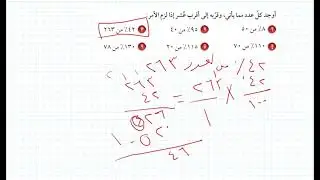 أوجد كلّ عدد مما يأتي، وقرّبه إلى أقرب عُشر إذا لزم الأمر
٨٪ من ٥٠ ٩٥٪ من ٤٠ ٤٢٪ من ٢٦٣
١١٠٪ من ٧٠ ١١٨٪ من ٢٠ ١٣٠٪ من ٧٨
٤٢٪ من العدد ٢٦٣
٢٦٣
٤٢ × ٢٦٣ = ٤٢
١٠٠ ١ ٥٢٦
١٠٥٢٠
٤٦